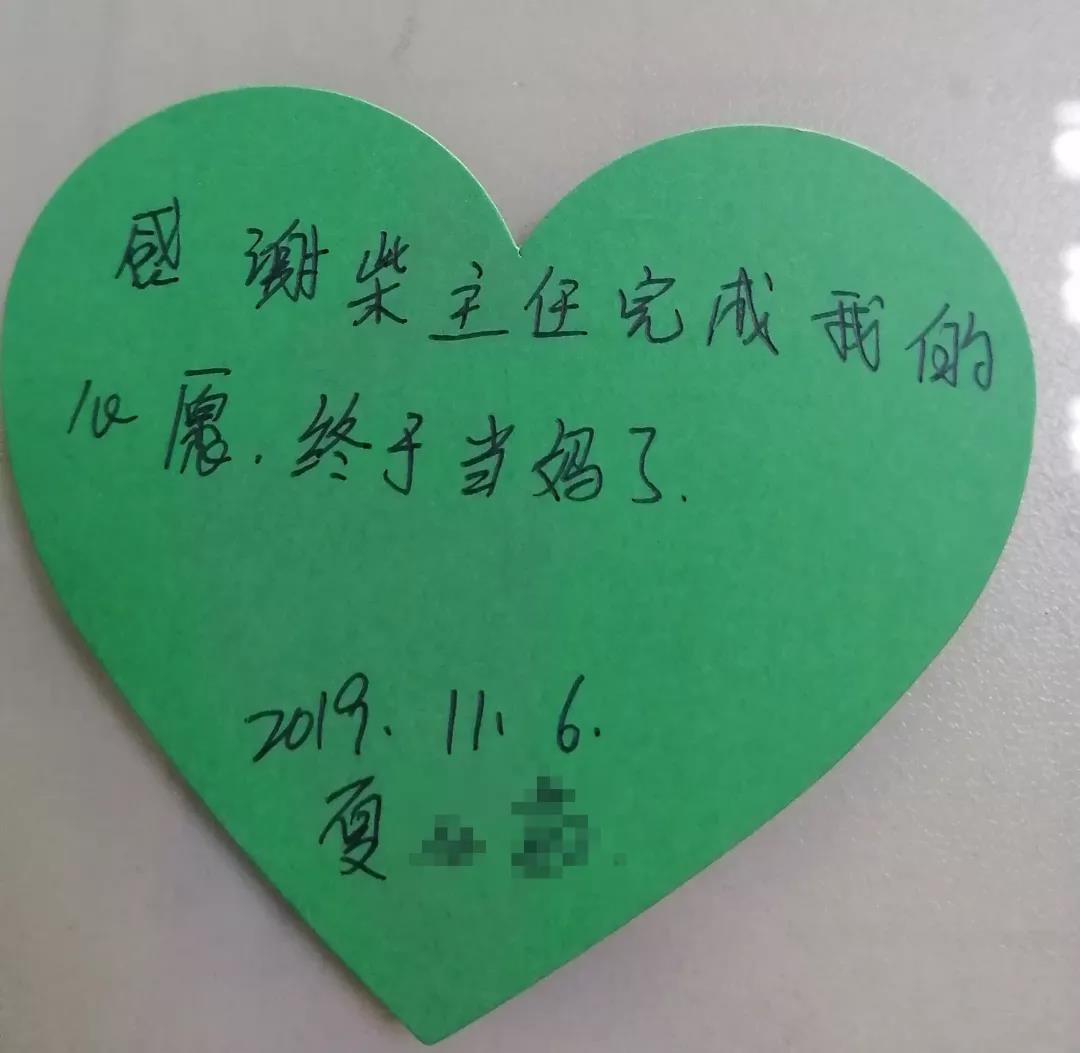 感谢柴主任完成我的
心愿.终于当妈了.
2019.11.6.
夏